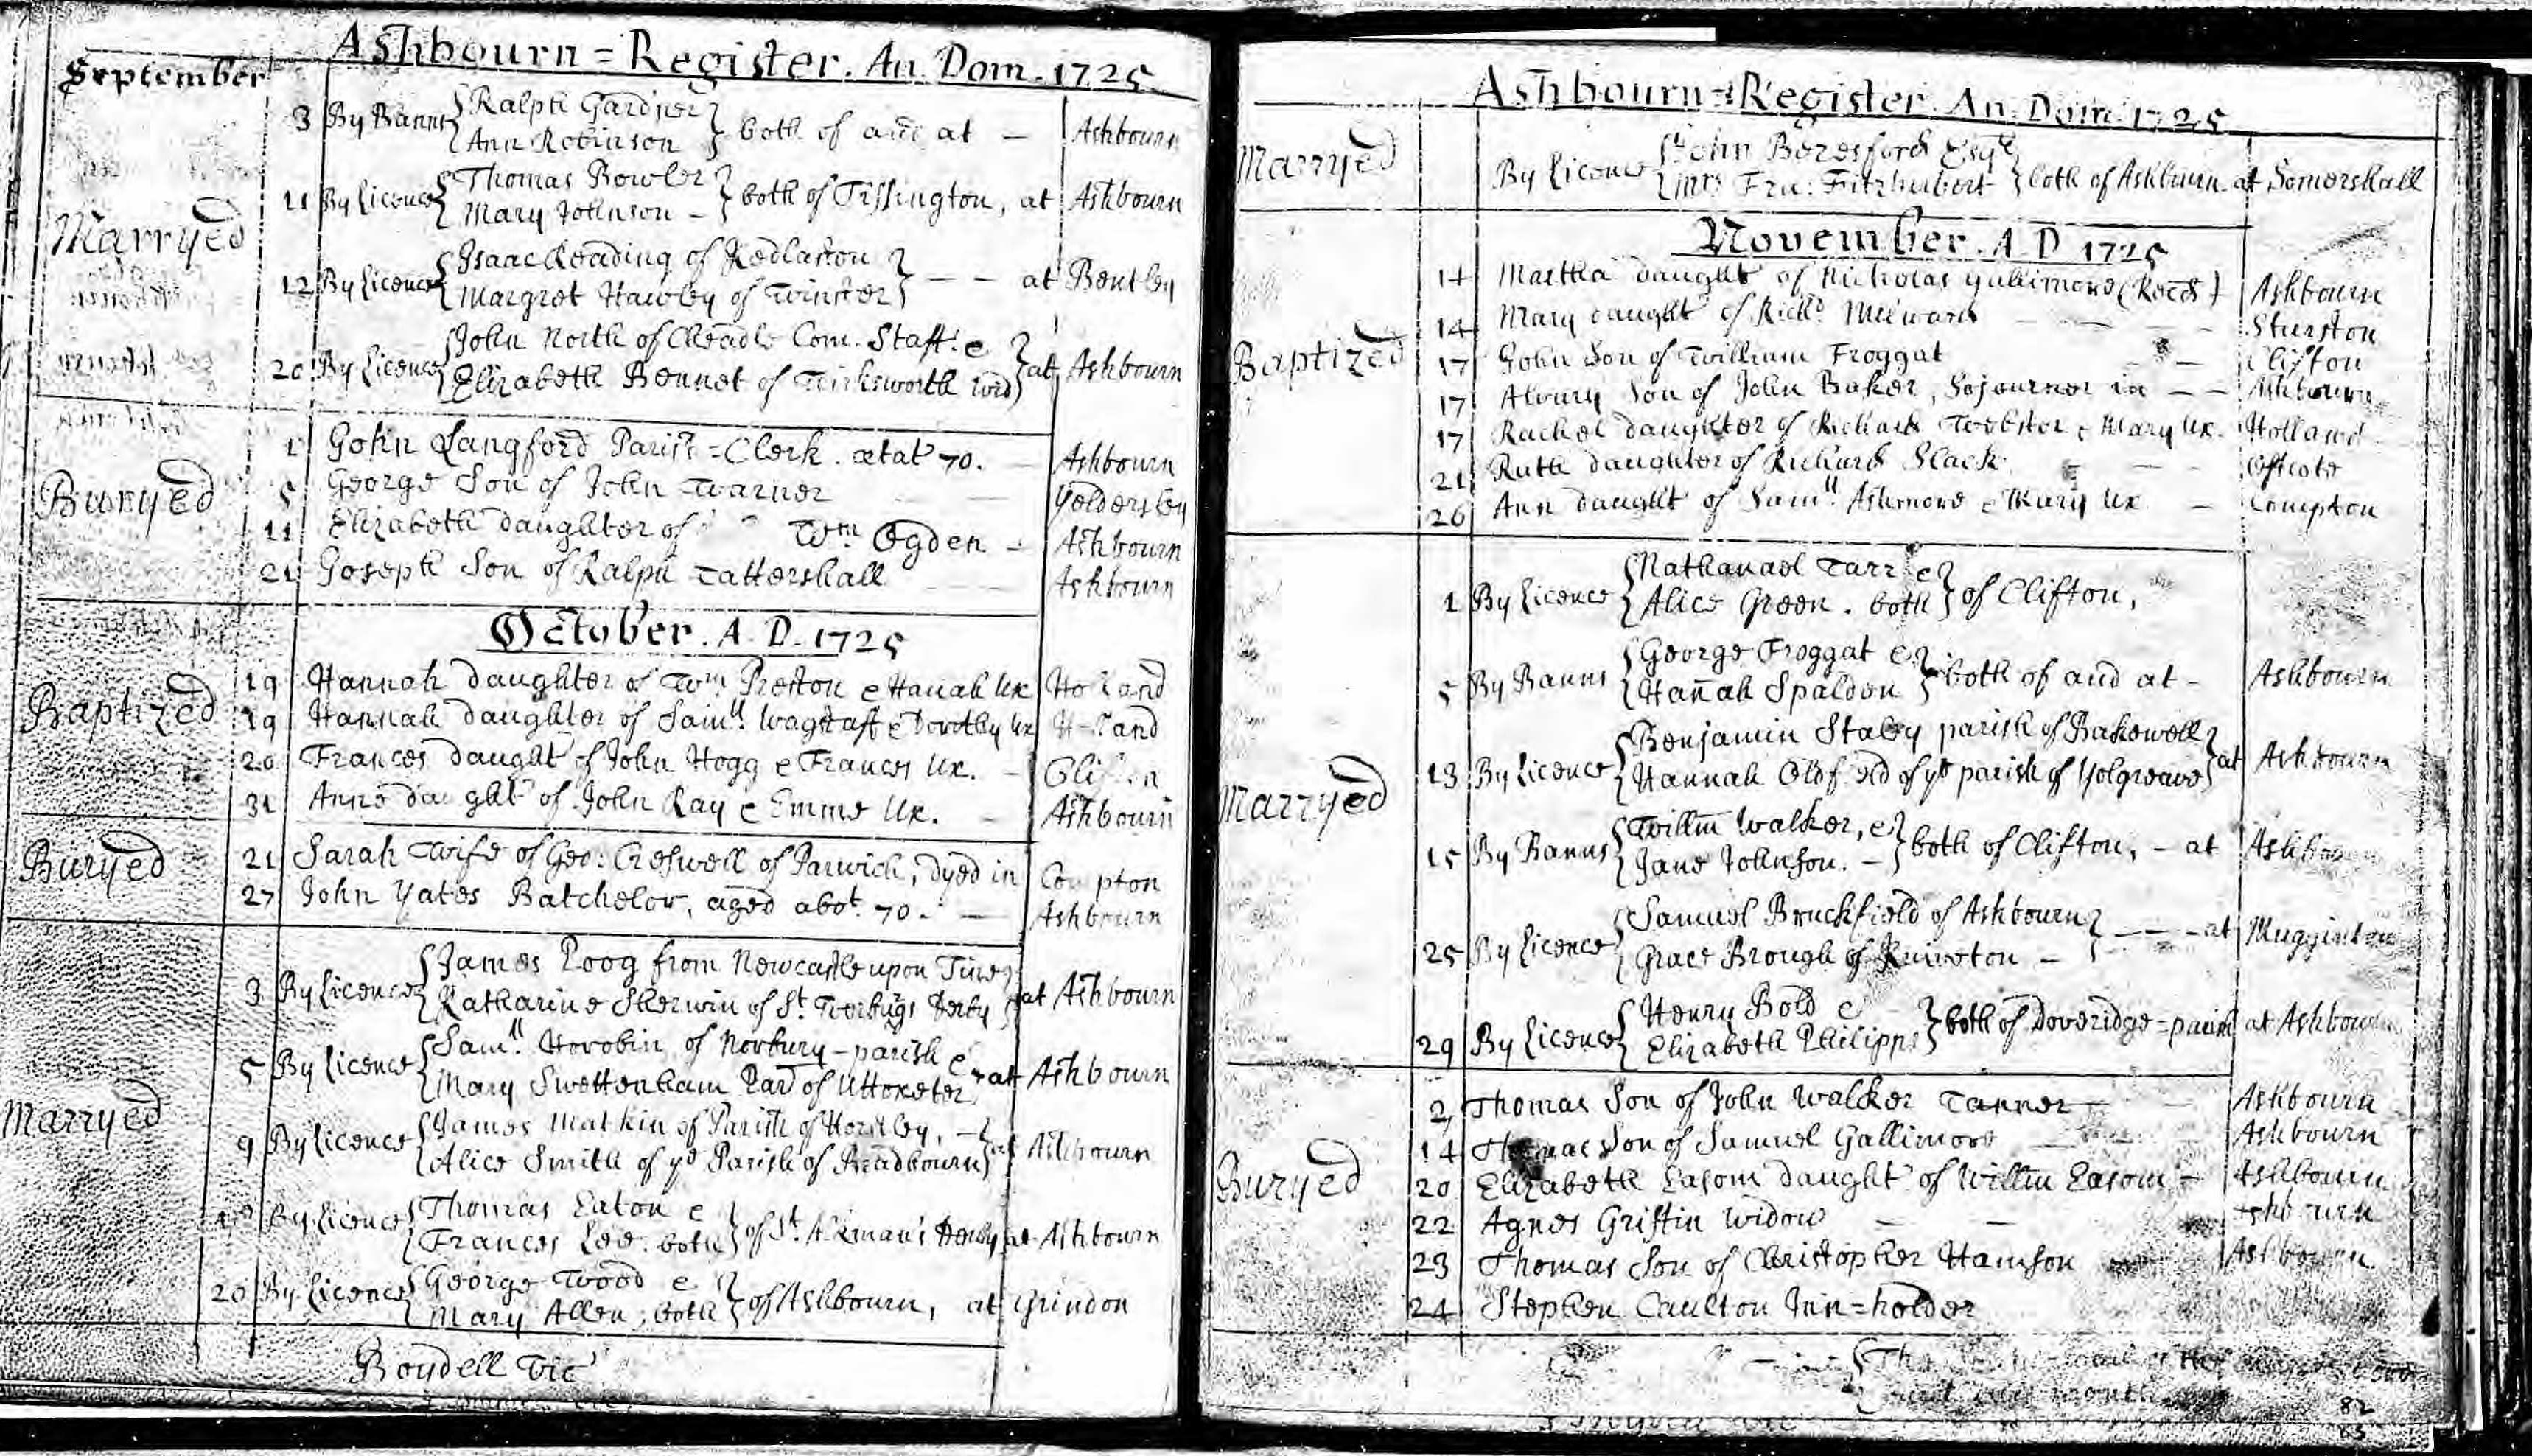 Ashbourn = Register. An. Dom. 1725
September
Marryed
3 By Banns { Ralph Gardner
Ann Robinson } both of and at — Ashbourn
11 By Licence { Thomas Bowler
Mary Johnson – } both of Tissington, at Ashbourn
12 By Licence { Isaac Reading of Kedlaston
Margret Hawley of Winster } — — at Bentley
20 By Licence { John North of Cheadle Com. Staff: e
Elizabeth Bennet of Wirksworth Wid } at Ashbourn
Buryed
1 John Langford Parish = Clerk. ætat 70. — Ashbourn
5 George Son of John Warner — Yeldersley
11 Elizabeth daughter of Wm Ogden – Ashbourn
21 Joseph Son of Ralph Tattershall — Ashbourn
October. A. D. 1725
Baptized
19 Hannah daughter of Wm. Preston e Hanah Ux Holland
19 Hannah daughter of Samll. Wagstaff e Dorothy Ux Holland
20 Frances daught of John Hogg e Frances Ux. – Clifton
31 Anne daught of John Ray e Emme Ux. – Ashbourn
Buryed
21 Sarah Wife of Geo: Creswell of Parwich, dyed in Compton
27 John Yates Batchelor, aged abot. 70. — Ashbourn
Marryed
3 By Licence { James Poog from Newcastle upon Tine
Katharine Sherwin of St. Werbugs Derby } at Ashbourn
5 By Licence { Samll. Horobin of Norbury – parish e
Mary Swettenham Par of Uttoxeter } at Ashbourn
9 By Licence { James Matkin of Parish of , –
Alice Smith of ye Parish of Bradbourn } at Ashbourn
By Licence { Thomas Eaton e
Frances Lee. both } of St. Alkman's Derby at Ashbourn
20 By Licence { George Wood e
Mary Allen; both } of Ashbourn, at Grindon
Boydell Vic
Ashbourn = Register. An. Dom. 1725
Marryed
By Licence { John Beresford Esqe
Mrs Fra: Fitzherbert } both of Ashburn at Somershall
November. A D 1725
Baptized
14 Martha daught of Nicholas Gallimore Ashbourn
14 Mary daught of Richd. Milward — — – Sturston
17 John Son of William Froggat — Clifton
17 Son of John Baker, Sojourner in — – Ashbourn
17 Rachel daughter of Richard Webster e Mary Ux. Holland
21 Ruth daughter of Richard Slack — Offcote
26 Ann daught of Samll Ashmore e Mary Ux – Compton
Marryed
1 By Licence { Nathanael Tarr e
Alice Green. both } of Clifton,
5 By Banns { George Froggat e
Hanah Spaldon } both of and at – Ashbourn
13 By Licence { Benjamin Staley parish of Bakewell
Hannah Oldfield of ye parish of Yolgreave } at Ashbourn
15 By Banns { Willm Walker, e
Jane Johnson. – } both of Clifton, – at Ashbourn
25 By Licence { Samuel Bruckfield of Ashbourn
Grace Brough of Kniveton – } — — at Mugginton
29 By Licence { Henry Bold e
Elizabeth Philipps } both of Doveridge = parish at Ashbourn
Buryed
2 Thomas Son of John Walker Tanner — Ashbourn
14 Thomas Son of Samuel Gallimore — Ashbourn
20 Elizabeth Easom daught of Willm Easom – Ashbourn
22 Agnes Griffin Widow — — Ashbourn
23 Thomas Son of Christopher Hamson Ashbourn
24 Stephen Caulton Inn = holder
82